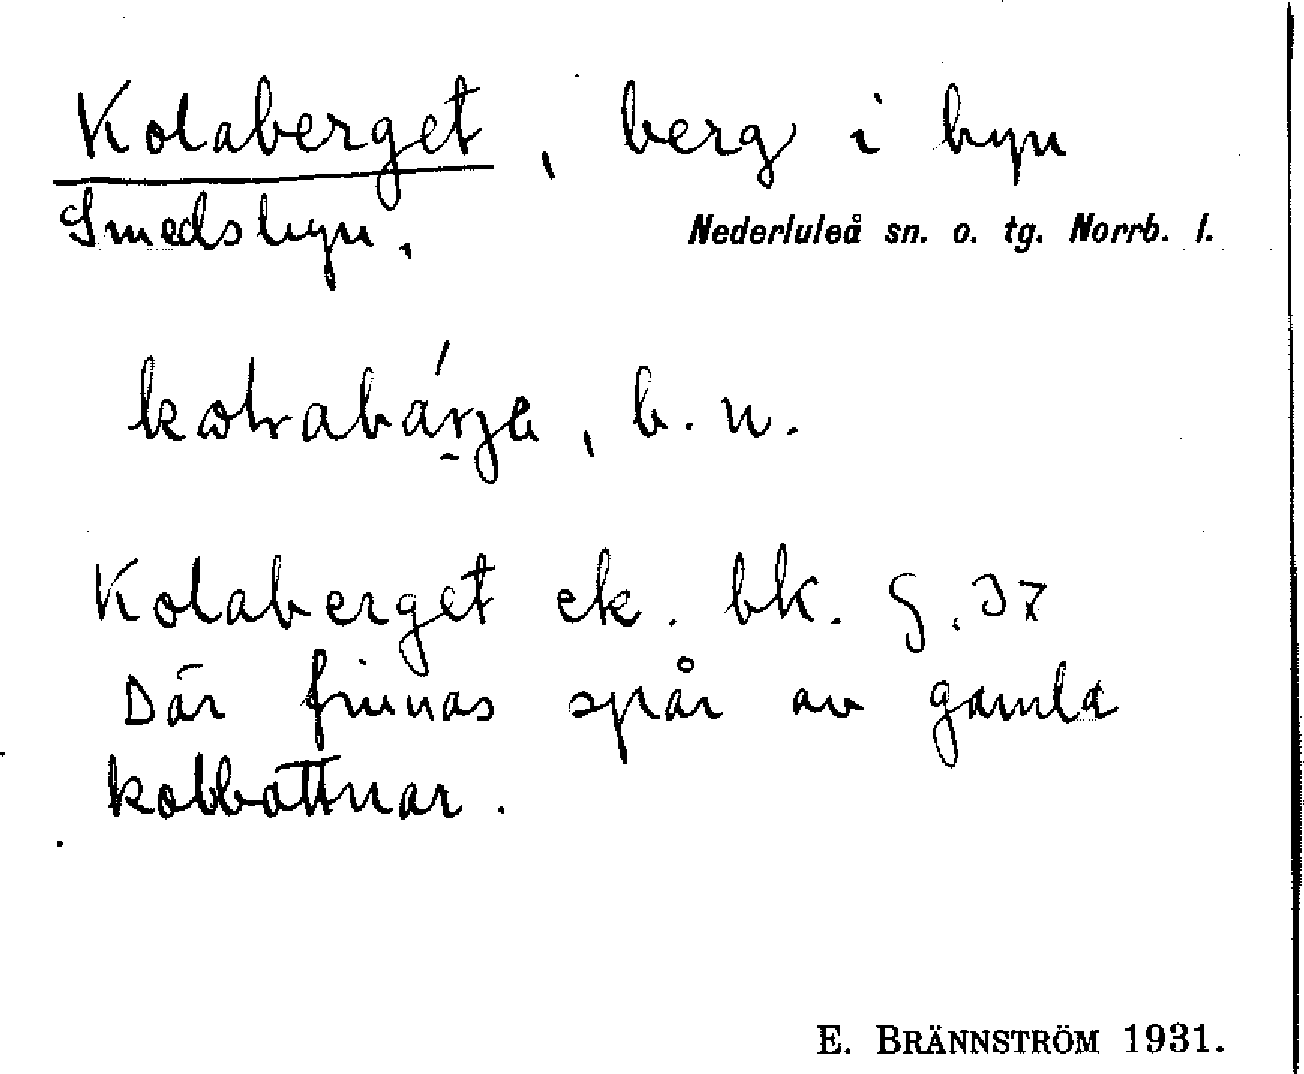 Kolaberget, berg i byn
Smedsbyn.
Nederluleå sn. o. tg. Norrb. l.
b. n.
Kolaberget ek. bk. g. 37
Där finnas spår av gamla
kolbottnar.
E. BRÄNNSTRÖM 1931.